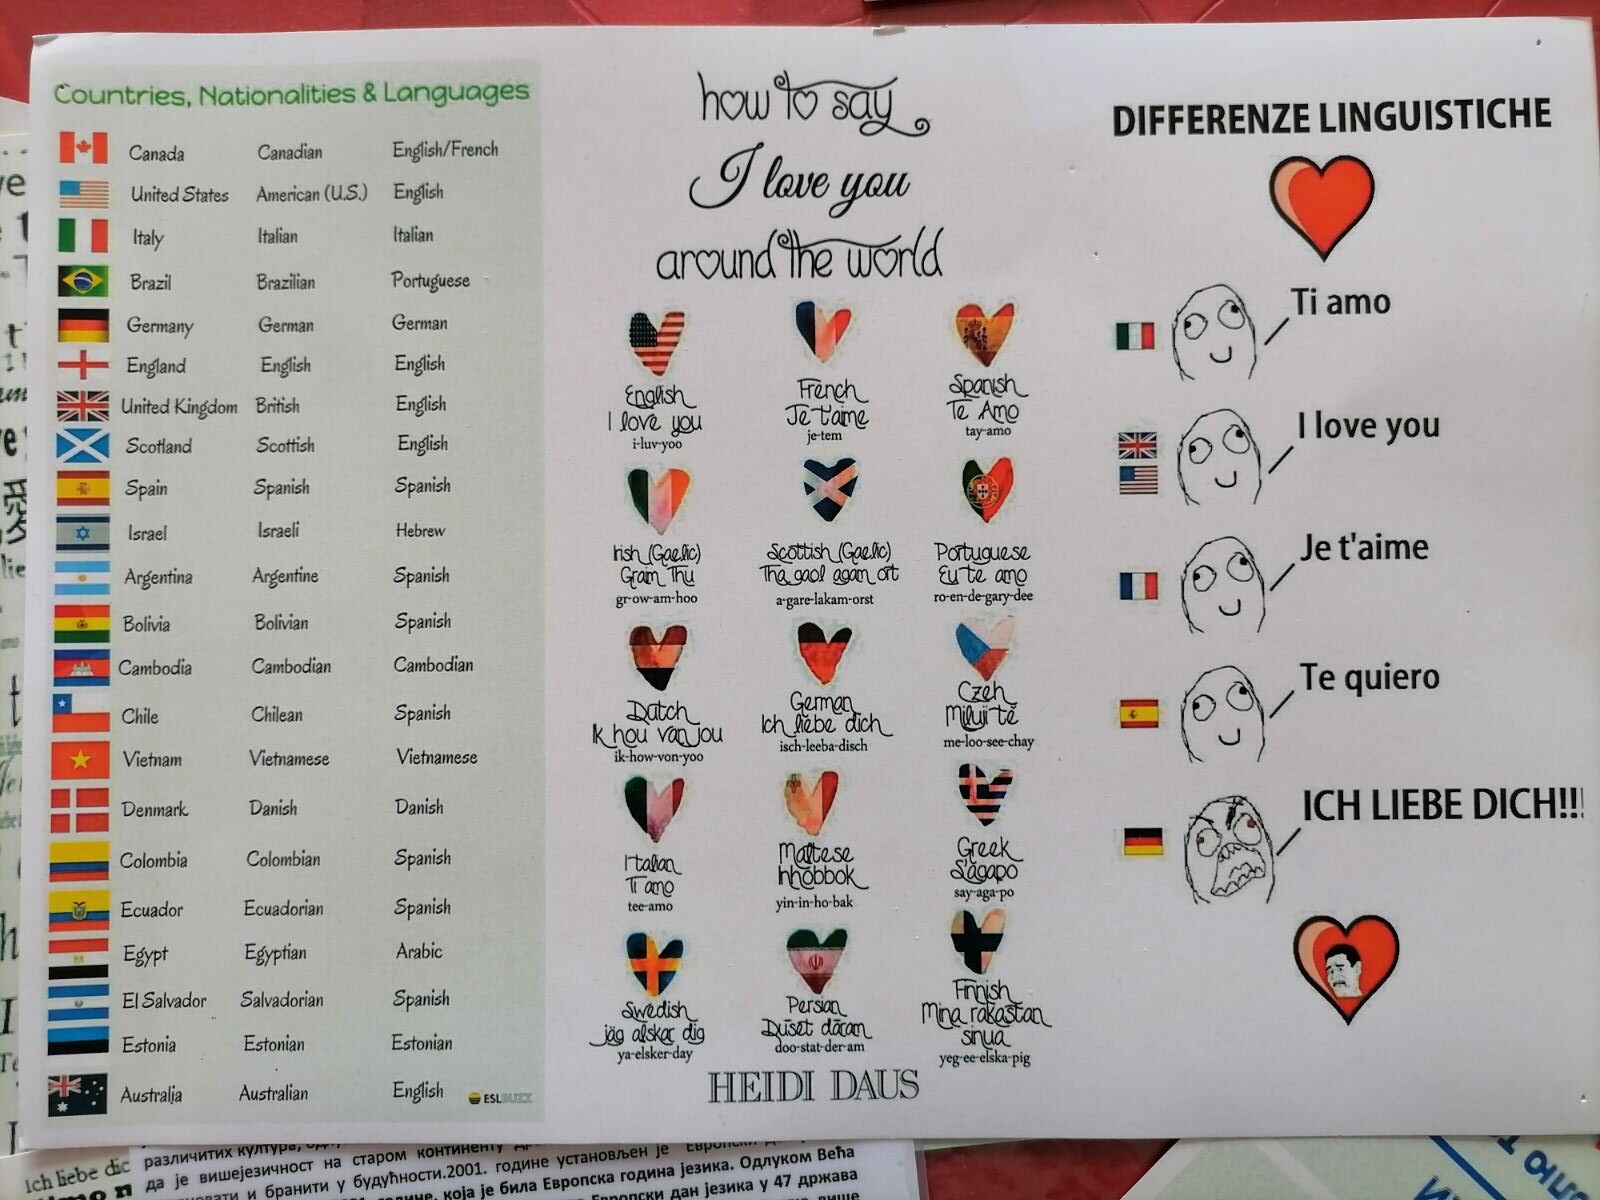 Countries, Nationalities & Languages
Canada Canadian English/French
United States American (U.S.) English
Italy Italian Italian
Brazil Brazilian Portuguese
Germany German German
England English English
United Kingdom British English
Scotland Scottish English
Spain Spanish Spanish
Israel Israeli Hebrew
Argentina Argentine Spanish
Bolivia Bolivian Spanish
Cambodia Cambodian Cambodian
Chile Chilean Spanish
Vietnam Vietnamese Vietnamese
Denmark Danish Danish
Colombia Colombian Spanish
Ecuador Ecuadorian Spanish
Egypt Egyptian Arabic
El Salvador Salvadorian Spanish
Estonia Estonian Estonian
Australia Australian English
ESLBUZZ
how to say
I love you
around the world
English
I love you
i-luv-yoo
French
Je t'aime
je-tem
Spanish
Te Amo
tay-amo
Irish (Gaelic)
Graim Thu
gr-ow-am-hoo
Scottish (Gaelic)
Tha gaol agam ort
a-gare-lakam-orst
Portuguese
Eu te amo
ro-en-de-gary-dee
Dutch
Ik hou van jou
ik-how-von-yoo
German
Ich liebe dich
isch-leeba-disch
Czeh
Miluji tě
me-loo-see-chay
Italian
Ti amo
tee-amo
Maltese
hhobbok
yin-in-ho-bak
Greek
S'agapo
say-aga-po
Swedish
jag alskar dig
ya-elsker-day
Persian
Dūset dāram
doo-stat-der-am
Finnish
Mina rakastan
sinua
yeg-ee-elska-pig
HEIDI DAUS
DIFFERENZE LINGUISTICHE
Ti amo
I love you
Je t'aime
Te quiero
ICH LIEBE DICH!!!
Ich liebe dic
различитих култура,
да је вишејезичност на старом континенту
бранити у будућности.2001. године установљен је Европски
године, која је била Европска година језика. Одлуком Већа
Европски дан језика у 47 држава